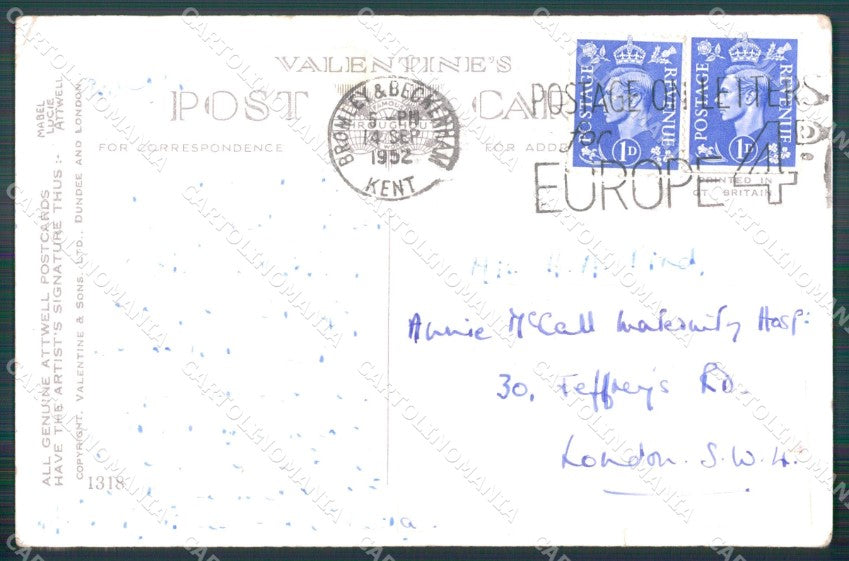 VALENTINE'S
POST CARD
FOR CORRESPONDENCE
FOR ADD
BROMLEY & BECKENHAM
5 - PM
14 SEP
1952
KENT
POSTAGE ON LETTERS
FOR
EUROPE 4D.
POSTAGE REVENUE
1D
POSTAGE REVENUE
1D
PRINTED IN
GT BRITAIN
Miss H.
Annie McCall Maternity Hosp:
30, Jeffreys Rd.
London. S.W.4.
ALL GENUINE ATTWELL POSTCARDS
HAVE THE ARTIST'S SIGNATURE THUS :-
MABEL
LUCIE
ATTWELL
COPYRIGHT, VALENTINE & SONS, LTD., DUNDEE AND LONDON.
1318
CARTOLINOMANIA